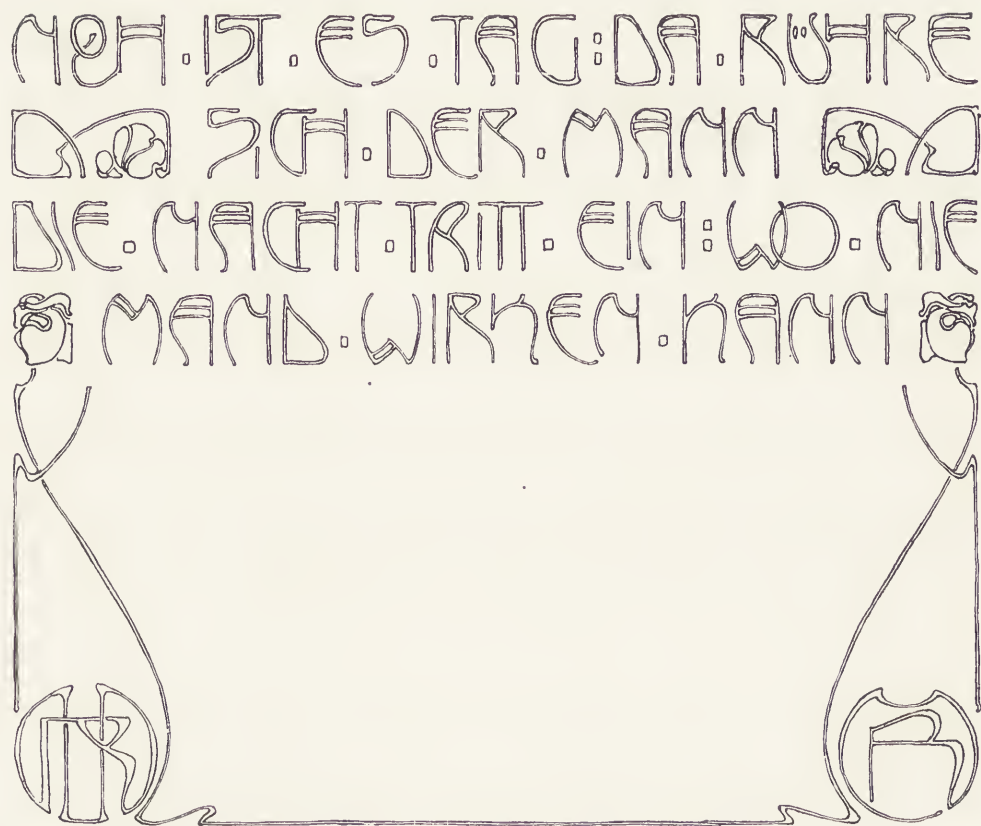 NOCH · IST · ES · TAG : DA · RÜHRE
SICH · DER · MANN
DIE · NACHT · TRITT · EIN : WO · NIE
MAND · WIRKEN · KANN